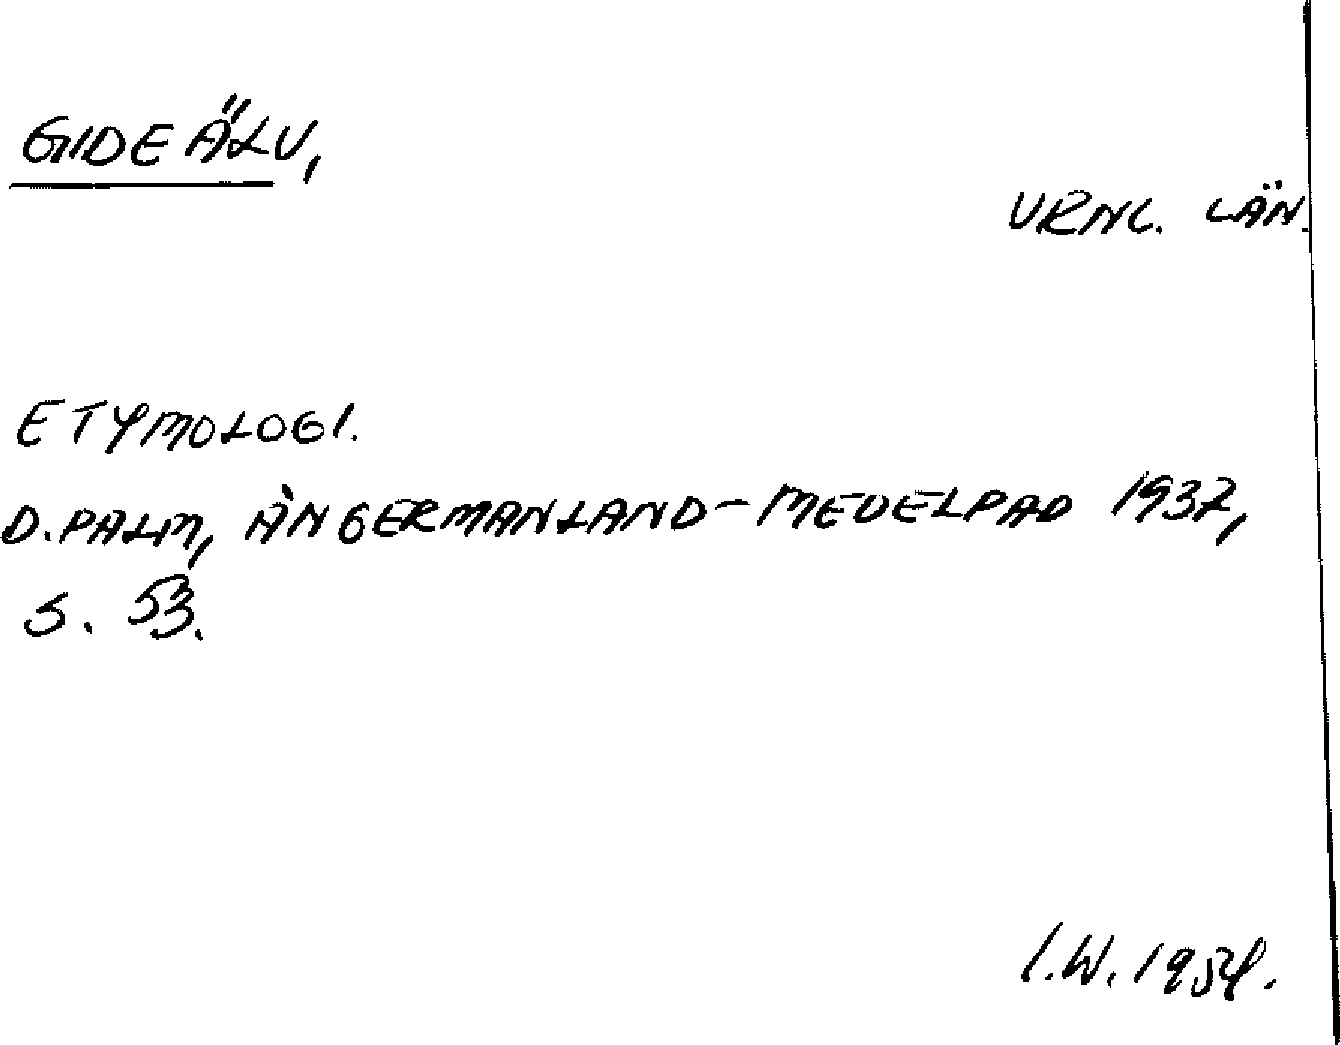 GIDE ÄLV,
VRNL. LÄN.
ETYMOLOGI.
D. PALM, ÅNGERMANLAND-MEDELPAD 1937,
S. 53.
I.W. 1954.